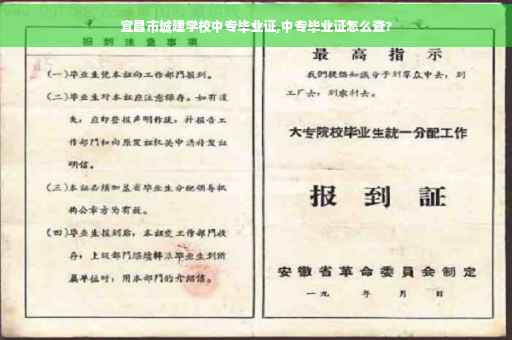 宜昌市城建学校中专毕业证,中专毕业证怎么查?
报到注意事项
(一)毕业生凭本证向工作部门报到。
(二)毕业生对本证应注意保存。如有遗
失,应即登报声明作废,并报告工
作部门和向原发证机关申请补发证
明信。
(三)本证必须加盖省毕业生分配领导机
构公章方为有效。
(四)毕业生报到后,本证交工作部门收
存;上级部门继续转派毕业生到所
属单位时,用本部门的介绍信。
最高指示
我们提倡知识分子到群众中去,到
工厂去,到农村去。
大专院校毕业生統一分配工作
报到証
安徽省革命委員会制定
一九 年 月 日